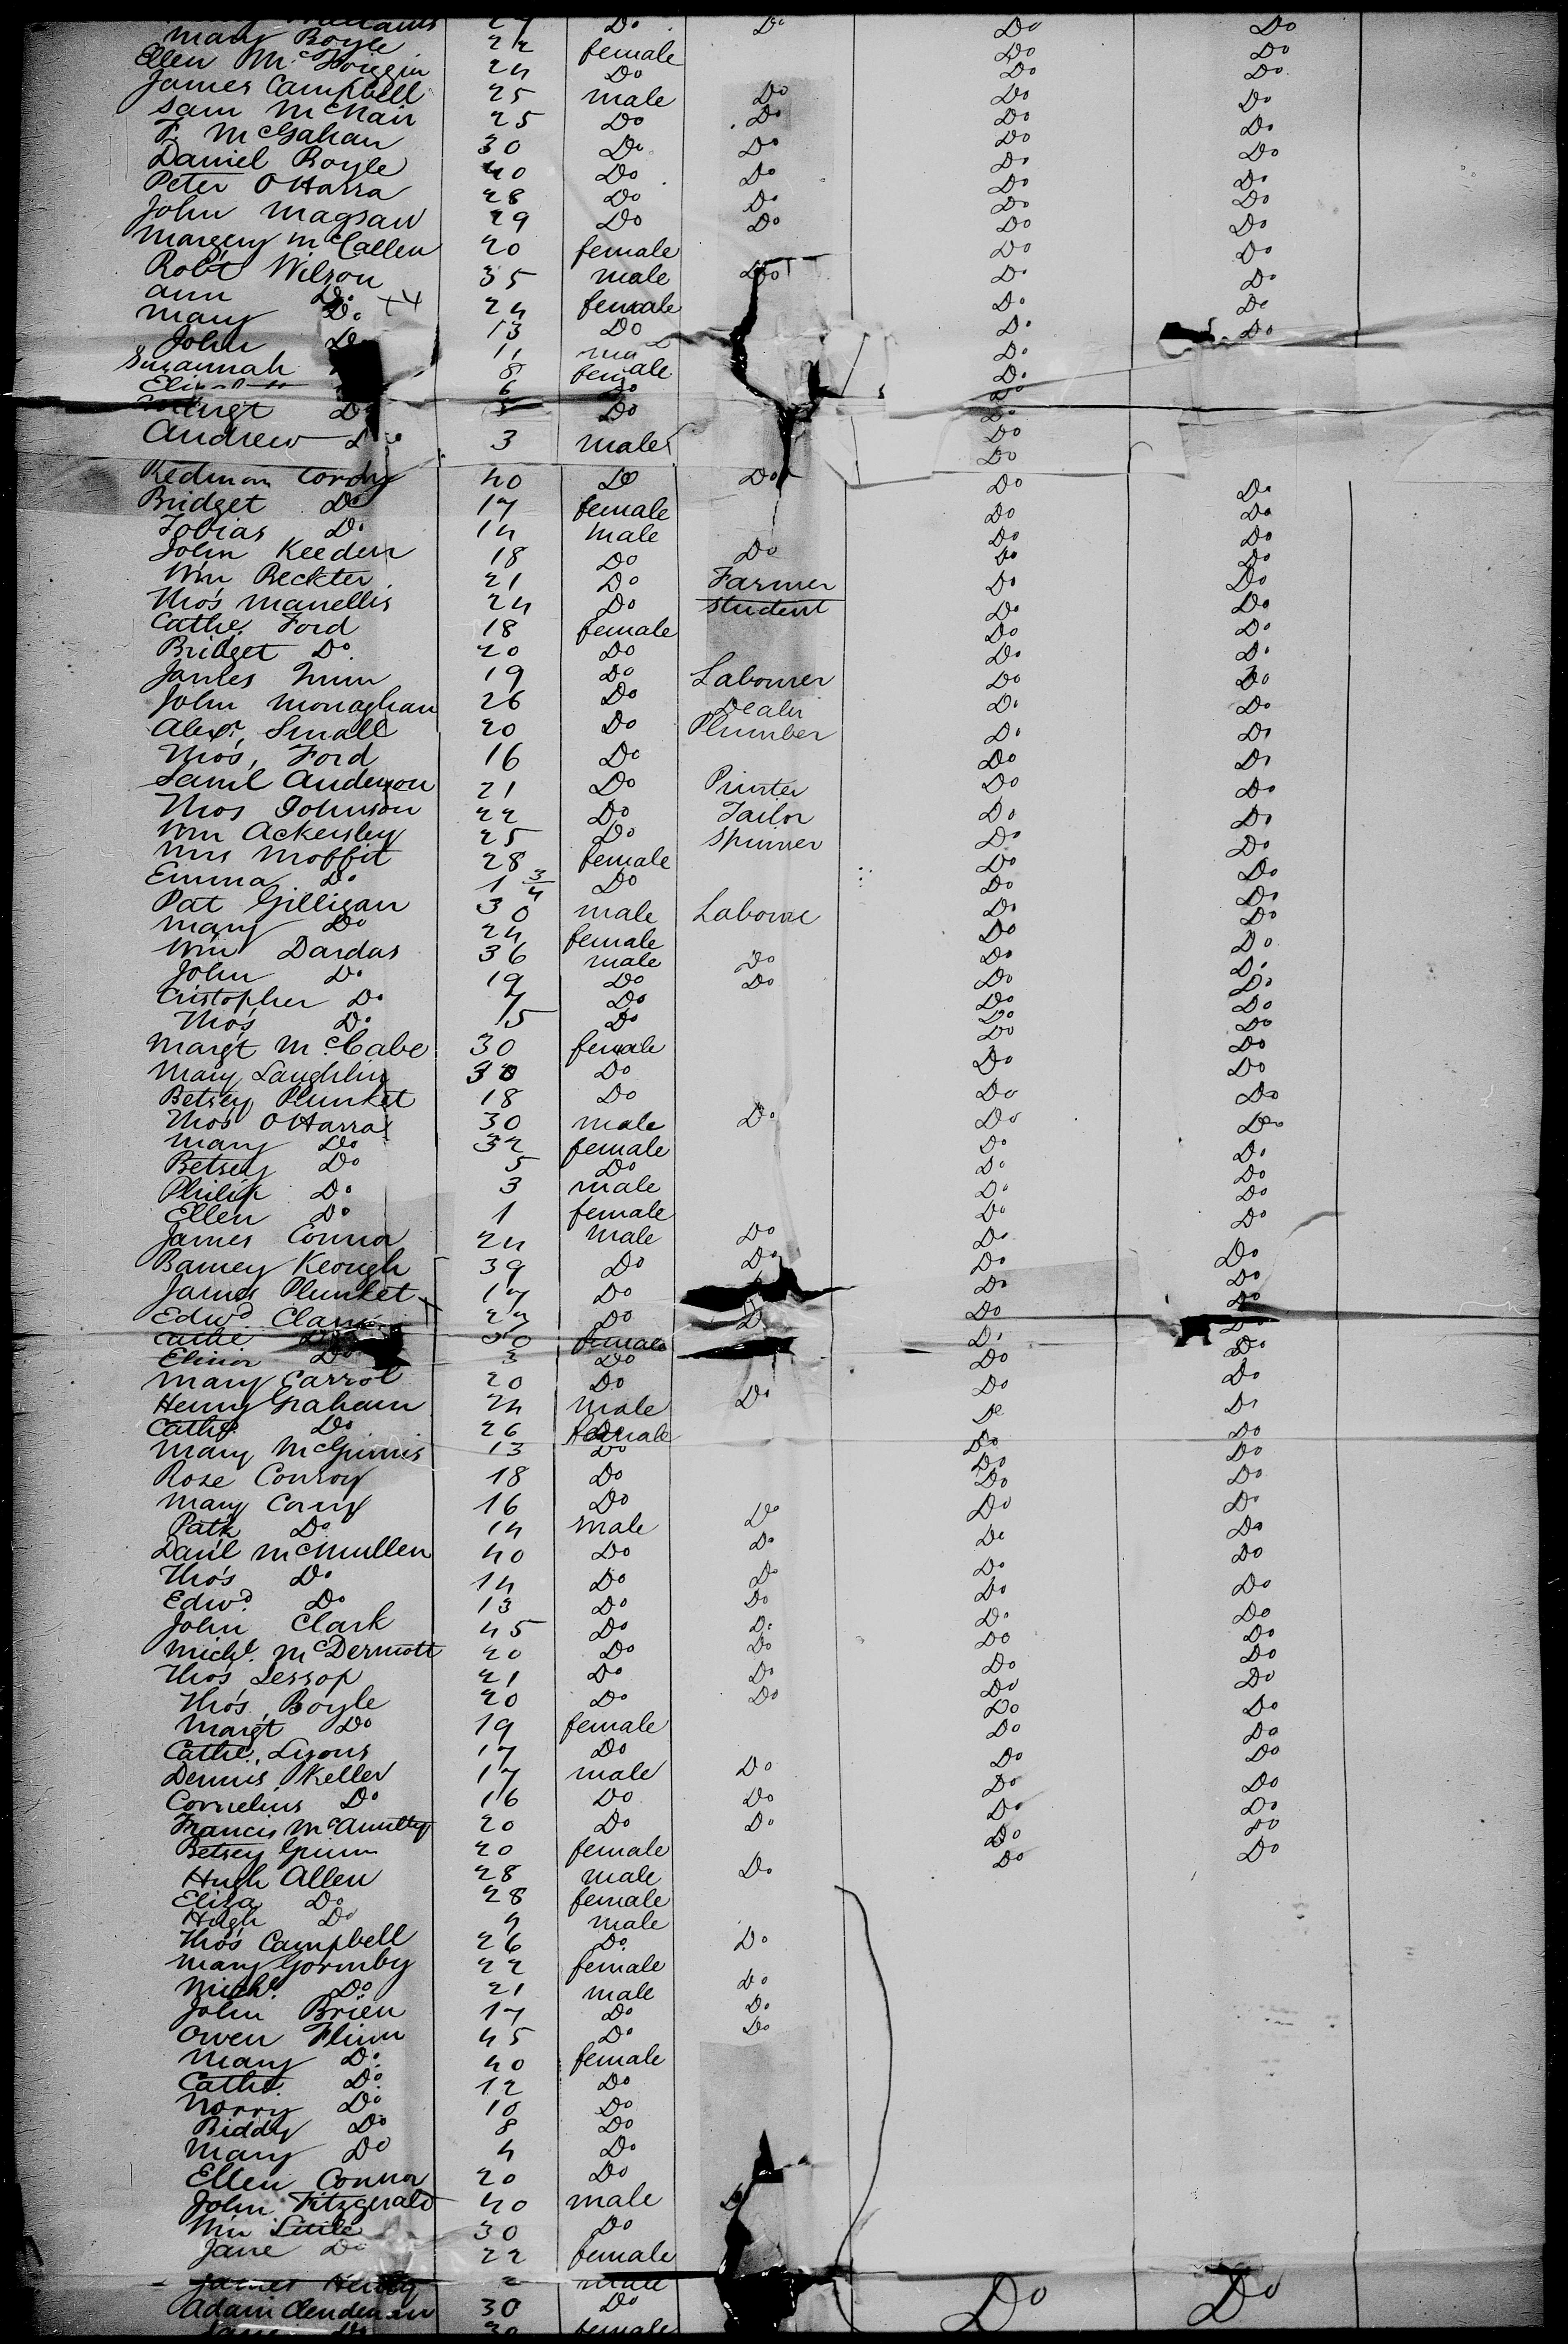 Do Do Do Do
Mary Boyle 22 female Do Do
Ellen McGoiggin 24 Do Do Do
James Campbell 25 male Do Do Do
Sam McNair 25 Do Do Do Do
F. McGahan 30 Do Do Do Do
Daniel Boyle 40 Do Do Do Do
Peter OHarra 28 Do Do Do Do
John Magsaw 29 Do Do Do Do
Margery McCallen 20 female Do Do
Robt Wilson 35 male Do Do Do
Ann Do 24 female Do Do
Mary Do 13 Do Do Do
John Do 11 Do
Susannah 8 female Do
6 Do Do
Do 5 Do Do
Andrew 3 male Do
Redmon Cordy 40 Do Do Do Do
Bridget Do 17 female Do Do
Tobias Do 14 male Do Do
John Keeden 18 Do Do Do Do
Wm Reckter 21 Do Farmer Do Do
Thos Manellis 24 Do Student Do Do
Cathe. Ford 18 female Do Do
Bridget Do 20 Do Do Do
James Nunn 19 Do Labourer Do Do
John Monaghan 26 Do Dealer Do Do
Alexr. Small 20 Do Plumber Do Do
Thos, Ford 16 Do Do Do
Saml Anderson 21 Do Printer Do Do
Thos Johnson 22 Do Tailor Do Do
Wm Ackersley 25 Do Spinner Do Do
Mrs Moffit 28 female Do Do
Emma Do 1 3/4 Do Do Do
Pat Gilligan 30 male Laborer Do Do
Mary Do 24 female Do Do
Wm Dardas 36 male Do Do Do
John Do 19 Do Do Do Do
Cristopher Do 7 Do Do Do
Thos Do 15 Do Do Do
Margt McCabe 30 female Do Do
Mary Laughlin 30 Do Do Do
Betsey Plunket 18 Do Do Do
Thos OHarra 30 male Do Do Do
Mary Do 32 female Do Do
Betsey Do 5 Do Do Do
Philip Do 3 male Do Do
Ellen Do 1 female Do Do
James Connor 24 male Do Do
Barney Keough 39 Do Do Do Do
James Plunket 17 Do Do Do
Edwd Clark 27 Do D Do Do
30 female Do Do
Elinor Do 3 Do Do Do
Mary Carrol 20 Do Do Do
Henry Graham 24 male Do Do Do
Cathe. Do 26 female Do Do
Mary McGinnis 13 Do Do Do
Rose Conroy 18 Do Do Do
Mary Corry 16 Do Do Do
Patk Do 14 male Do Do Do
Danl McMullen 40 Do Do Do Do
Thos Do 14 Do Do Do Do
Edwd. Do 13 Do Do Do Do
John Clark 45 Do Do Do Do
Michl. McDermott 20 Do Do Do Do
Thos Lessop 21 Do Do Do Do
Thos, Boyle 20 Do Do Do Do
Margt Do 19 female Do Do
Cathe. Lyons 17 Do Do Do
Dennis Keller 17 male Do Do Do
Cornelius Do 16 Do Do Do Do
Francis McAnulty 20 Do Do Do Do
Betsey Guinn 20 female Do Do
Hugh Allen 28 male Do
Eliza Do 28 female
Hugh Do male
Thos Campbell 26 Do Do
Mary Gormby 22 female
Michl. Do 21 male Do
John Brien 17 Do Do
Owen Flinn 45 Do Do
Mary Do 40 female
Cathe. Do 12 Do
Norry Do 10 Do
Biddy Do 8 Do
Mary Do 4 Do
Ellen Connor 20 Do
John Fitzgerald 40 male Do
Wm Little 30 Do
Jane Do 22 female
James Henry male
Adam Clendenen 30 Do Do Do
Do female